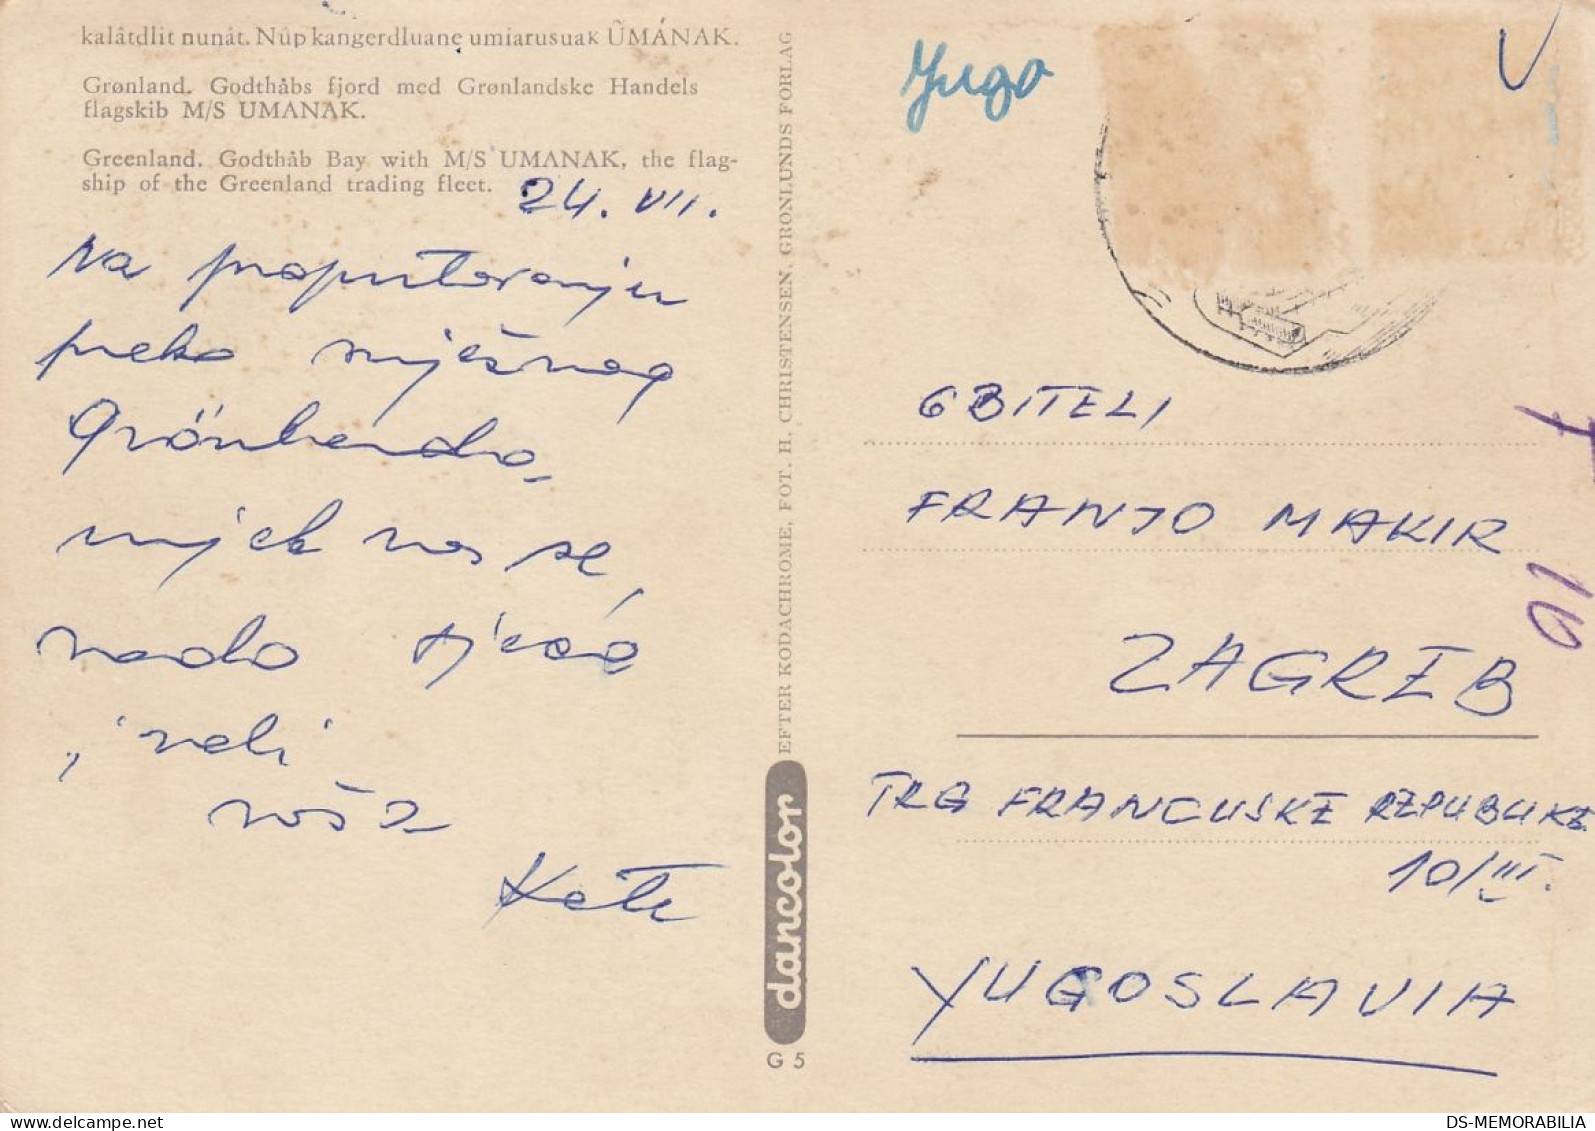 kalâtdlit nunât. Nûp kangerdluane umiarusuaĸ ŨMÁNAK.
Grønland. Godthåbs fjord med Grønlandske Handels
flagskib M/S UMANAK.
Greenland. Godthåb Bay with M/S UMANAK, the flag-
ship of the Greenland trading fleet.
24. VII.
Na proputovanju
preko snješnog
Grönlanda,
uvjek vas se
rado sjeća
i veli
vaša
Kate
EFTER KODACHROME, FOT. H. CHRISTENSEN, GRØNLUNDS FORLAG
dancolor
G 5
Yugo
V
OBITELJI
FRANJO MAKIR
ZAGREB
TRG FRANCUSKE REPUBLIKE
10/III.
YUGOSLAVIA
T
10
DS-MEMORABILIA